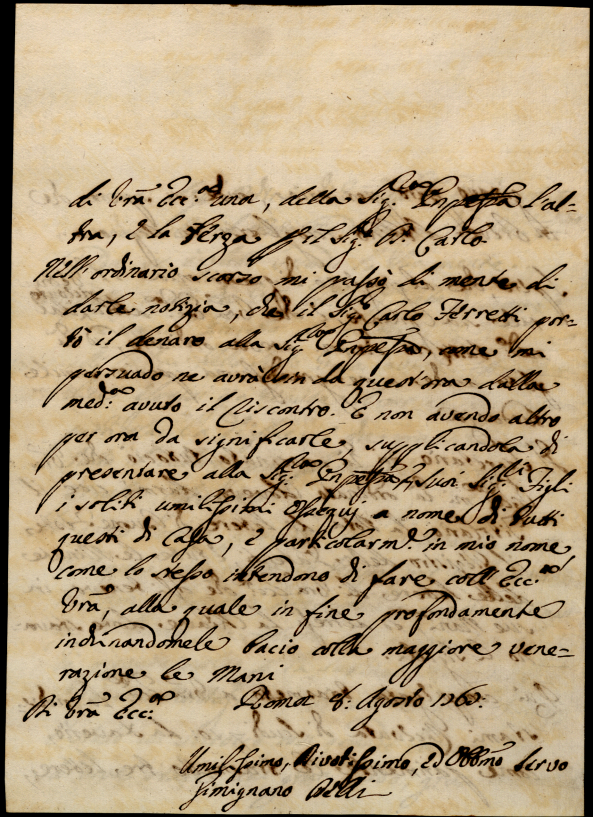 di Vrã Ecc.ᵃ una, della Sig.ʳᵃ Pnpẽssa l'al=
tra, e la terza p il Sig.ʳ Carlo
Nell'ordinario scorso mi passò di mente di
darle notizia, che il Sig.ʳ Carlo Ferretti por=
tò il denaro alla Sig.ʳᵃ Pnpẽssa, come mi
persuado ne avrà da quest'ora dalla
med.ᵃ avuto il riscontro. E non avendo altro
per ora da significarle, supplicandola di
presentare alla Sig.ʳᵃ Pnpẽssa, e suoi Sig.ʳⁱ Figli
i soliti umilissimi ossequj a nome di tutti
questi di Casa, e particolarm.ᵉ in mio nome
come lo stesso intendono di fare coll'Ecc.ᵃ
Vrã, alla quale in fine profondamente
inchinandomele bacio colla maggiore vene=
razione le Mani
Di Vrã Ecc.ᵃ Roma 8. Agosto
Umilissimo, Divotissimo, ed Obbmõ Servo
Gimignano Belli